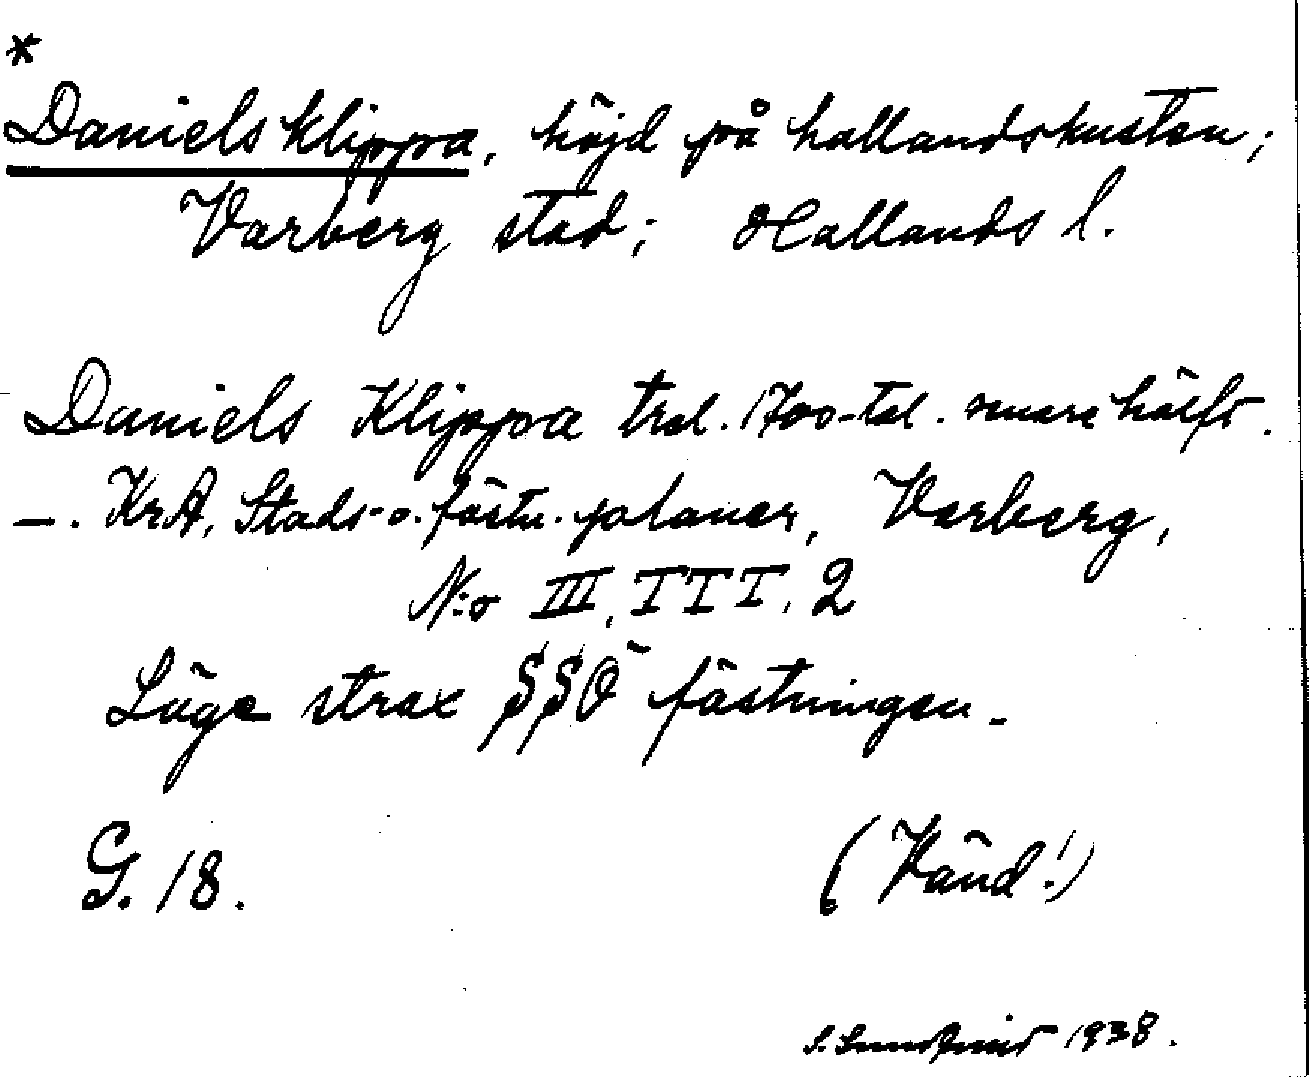 *
Daniels klippa, höjd på hallandskusten;
Varberg stad; Hallands l.
Daniels Klippa trol. 1700-tal. senare hälft.
—. KrA, Stads- o. fästn. planer, Varberg,
N:o III, TTT. 2
Läge strax SSÖ fästningen.
G. 18.
(Vänd!)
S. Sundqvist 1938.